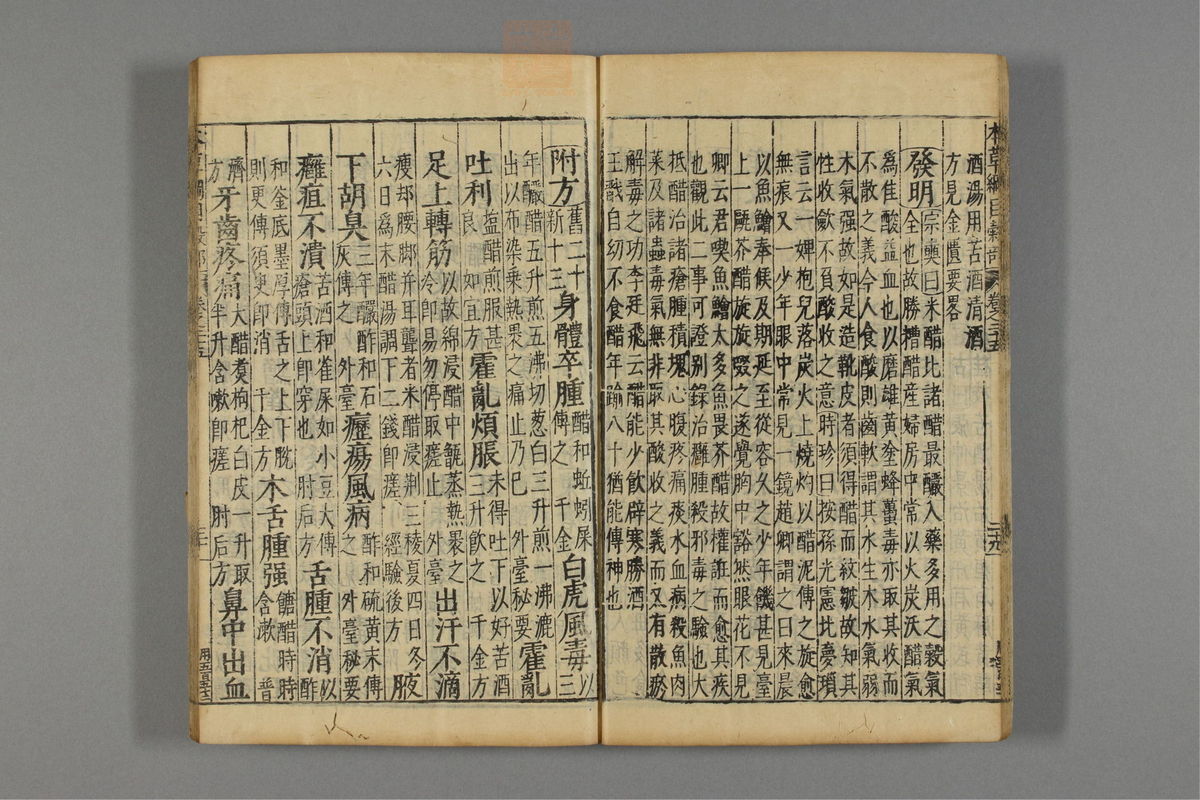 本草綱目穀部 卷之二十五 二十九
酒湯用苦酒清酒
方見金匱要畧
發明宗奭曰米醋比諸醋最釅入藥多用之穀氣
全也故勝糟醋産婦房中常以火炭沃醋氣
為佳酸益血也以磨雄黃塗蜂蠆毒亦取其收而
不散之義今人食酸則齒軟謂其水生木水氣弱
木氣强故如是造靴皮者須得醋而紋皺故知其
性收斂不負酸收之意時珍曰按孫光憲北夢瑣
言云一婢抱兒落炭火上燒灼以醋泥傅之旋愈
無痕又一少年眼中常見一鏡趙卿謂之曰來晨
以魚鱠奉候及期延至從容久之少年饑甚見臺
上一甌芥醋旋旋啜之遂覺胸中豁然眼花不見
卿云君喫魚鱠太多魚畏芥醋故權誑而愈其疾
也觀此二事可證别錄治癰腫殺邪毒之驗也大
抵醋治諸瘡腫積塊心腹疼痛痰水血病殺魚肉
菜及諸蟲毒氣無非取其酸收之義而又有散瘀
解毒之功李廷飛云醋能少飲辟寒勝酒
王戩自幼不食醋年踰八十猶能傳神也
附方舊二十新十三身體卒腫醋和蚯蚓屎傅之 千金白虎風毒以三
年釅醋五升煎五沸切葱白三升煎一沸漉
出以布染乘熱裹之痛止乃已 外臺秘要霍亂
吐利鹽醋煎服甚良 如宜方霍亂煩脹未得吐下以好苦酒三升飲之 千金方
足上轉筋以故綿浸醋中甑蒸熱裹之冷卽易勿停取瘥止 外臺出汗不滴
瘦却腰脚并耳聾者米醋浸荆三稜夏四日冬
六日爲末醋湯調下二錢卽瘥 經驗後方腋
下胡臭三年釅酢和石灰傅之 外臺癧瘍風病酢和硫黃末傅之 外臺秘要
癰疽不潰苦酒和雀屎如小豆大傅瘡頭上卽穿也 肘后方舌腫不消以酢
和釜底墨厚傅舌之上下脫則更傅須臾卽消 千金方木舌腫强餹醋時時含漱 普
濟方牙齒疼痛大醋煑枸杞白皮一升取半升含嗽卽瘥 肘后方鼻中出血